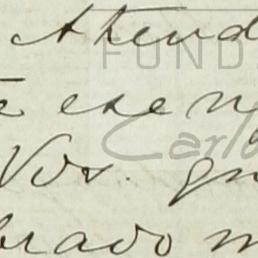 Atend
e exe n
Vos. qu
brado m
FUND
Carlo